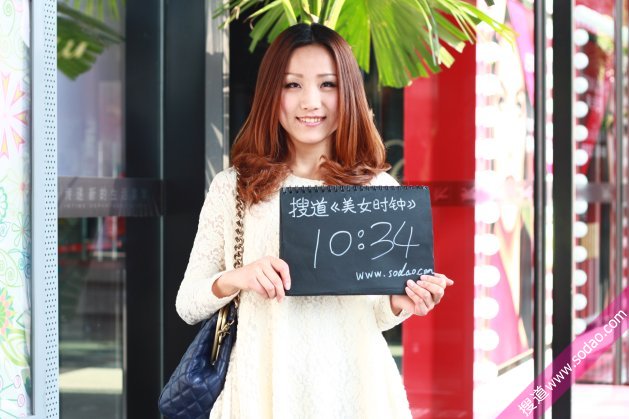 搜道《美女时钟》
10:34
www.sodao.com
搜道 www.sodao.com